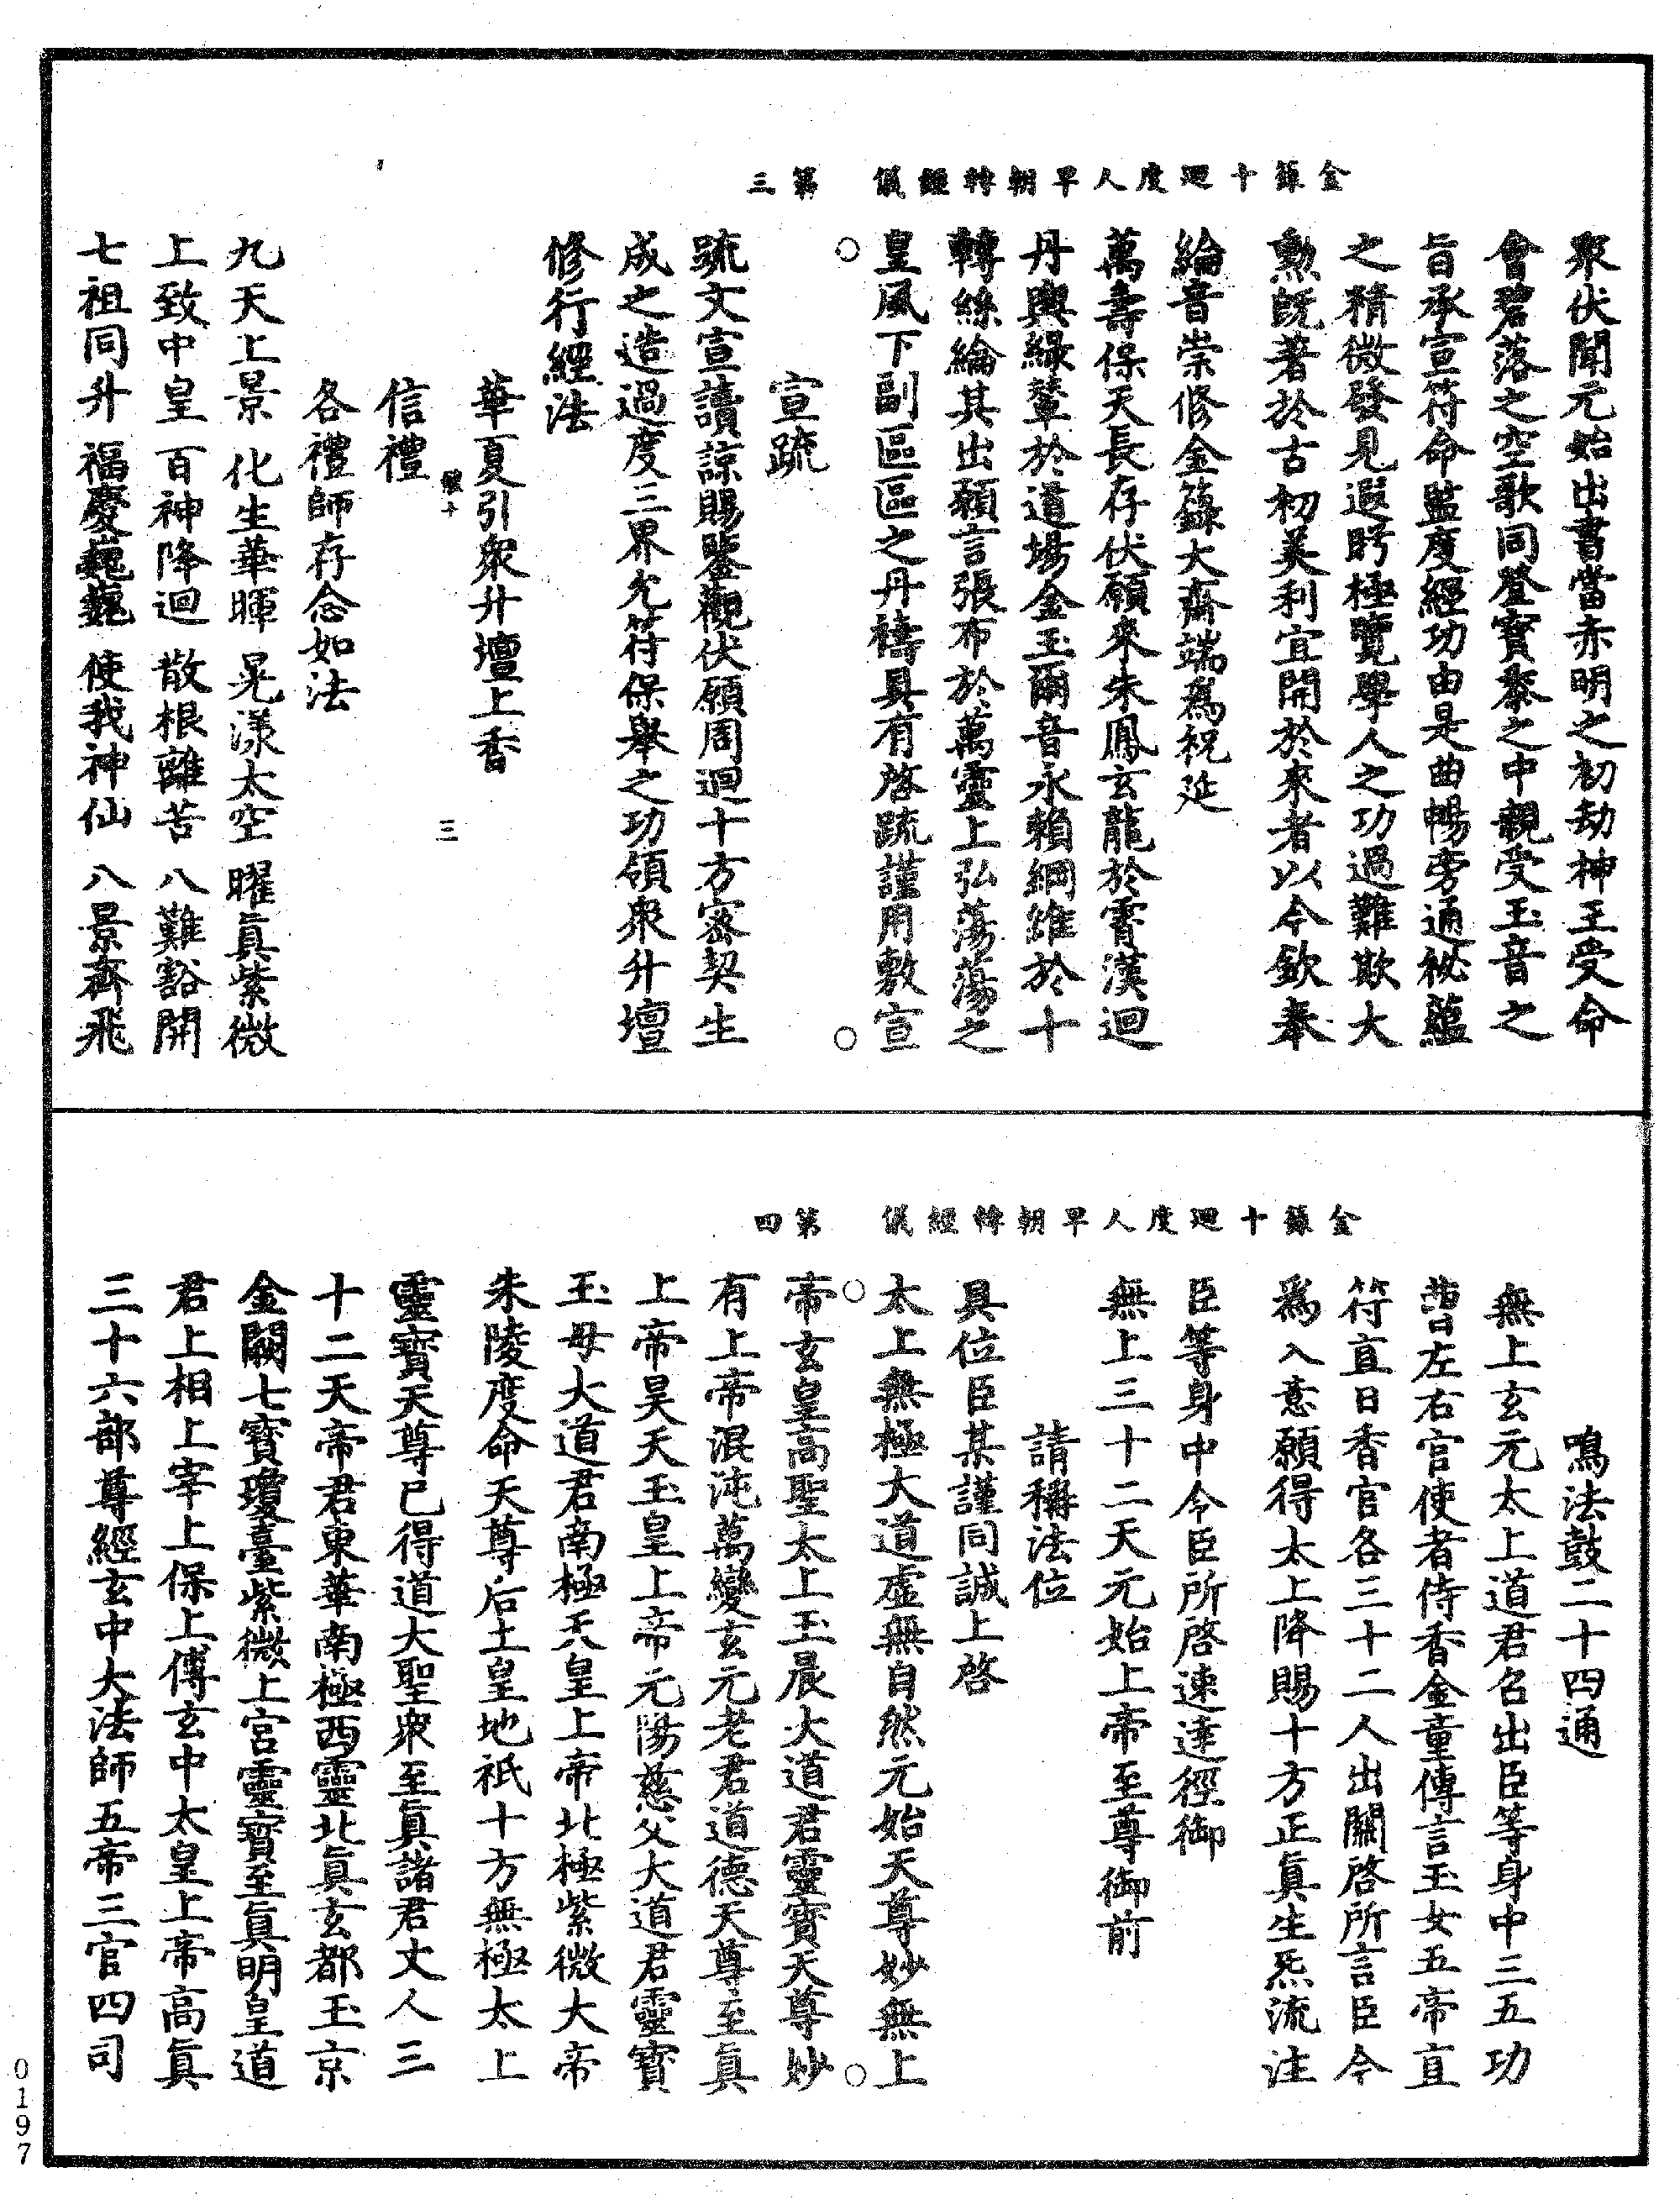 金籙十迴度人早朝轉經儀　第三
眾伏聞元始出書當赤明之初劫神王受命
會碧落之空歌同登寶黍之中親受玉音之
旨承宣符命監度經功由是曲暢旁通祕蘊
之精微發見遐眄極覽學人之功過難欺大
勲旣著於古初美利宜開於來者以今欽奉
綸音崇修金籙大齋端爲祝延
萬壽保天長存伏願來朱鳳玄龍於霄漢迴
丹輿綠輦於道場金玉爾音永賴綱維於十
轉絲綸其出願言張布於萬靈上弘蕩蕩之
皇風下副區區之丹禱具有啓䟽謹用敷宣
宣䟽
䟽文宣讀諒賜鑒觀伏願周迴十方密契生
成之造過度三界允符保舉之功領衆升壇
修行經法
華夏引衆升壇上香
三
信禮
各禮師存念如法
九天上景　化生華暉　晃漾太空　曜眞紫微
上致中皇　百神降迴　散根離苦　八難豁開
七祖同升　福慶巍巍　使我神仙　八景齊飛
金籙十迴度人早朝轉經儀　第四
鳴法鼓二十四通
無上玄元太上道君召出臣等身中三五功
曹左右官使者侍香金童傳言玉女五帝直
符直日香官各三十二人出關啓所言臣今
爲入意願得太上降賜十方正眞生炁流注
臣等身中令臣所啓速達徑御
無上三十二天元始上帝至尊御前
請稱法位
具位臣某謹同誠上啓
太上無極大道虛無自然元始天尊妙無上
帝玄皇高聖太上玉晨大道君靈寶天尊妙
有上帝混沌萬變玄元老君道德天尊至眞
上帝昊天玉皇上帝元陽慈父大道君靈寶
玉毋大道君南極天皇上帝北極紫微大帝
朱陵度命天尊后土皇地祇十方無極太上
靈寶天尊已得道大聖衆至眞諸君丈人三
十二天帝君東華南極西靈北眞玄都玉京
金闕七寶瓊臺紫微上宮靈寶至眞明皇道
君上相上宰上保上傅玄中太皇上帝高眞
三十六部尊經玄中大法師五帝三官四司
0197